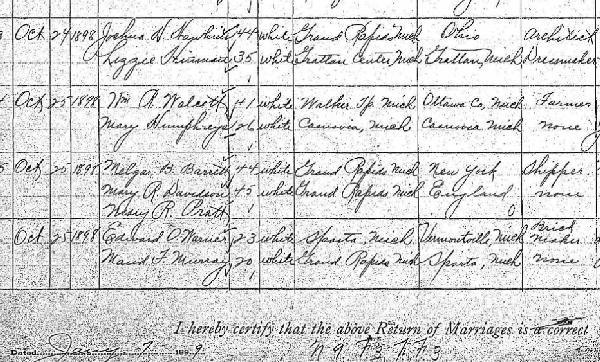 3 Oct 24 1898 Joshua D. 44 white Grand Rapids Mich Ohio Architect
Lizzie 35 white Grattan Center Mich Grattan, Mich Dressmaker
4 Oct 25 1898 Wm R. Walcott 41 white Walker Tp Mich Ottawa Co, Mich Farmer
Mary Humphreys 26 white Casnovia, Mich Casnovia Mich none
5 Oct 25 1898 B. Barrett 44 white Grand Rapids Mich New York Shipper
Mary R Davidson 45 white Grand Rapids Mich England none
Mary R. Pratt
Oct 25 1898 Edward O Warner 23 white Sparta, Mich Vermontville, Mich Brick maker
Maud F Murray 20 white Grand Rapids Mich Sparta, Mich none
I hereby certify that the above Return of Marriages is a correct
Dated 7 1899